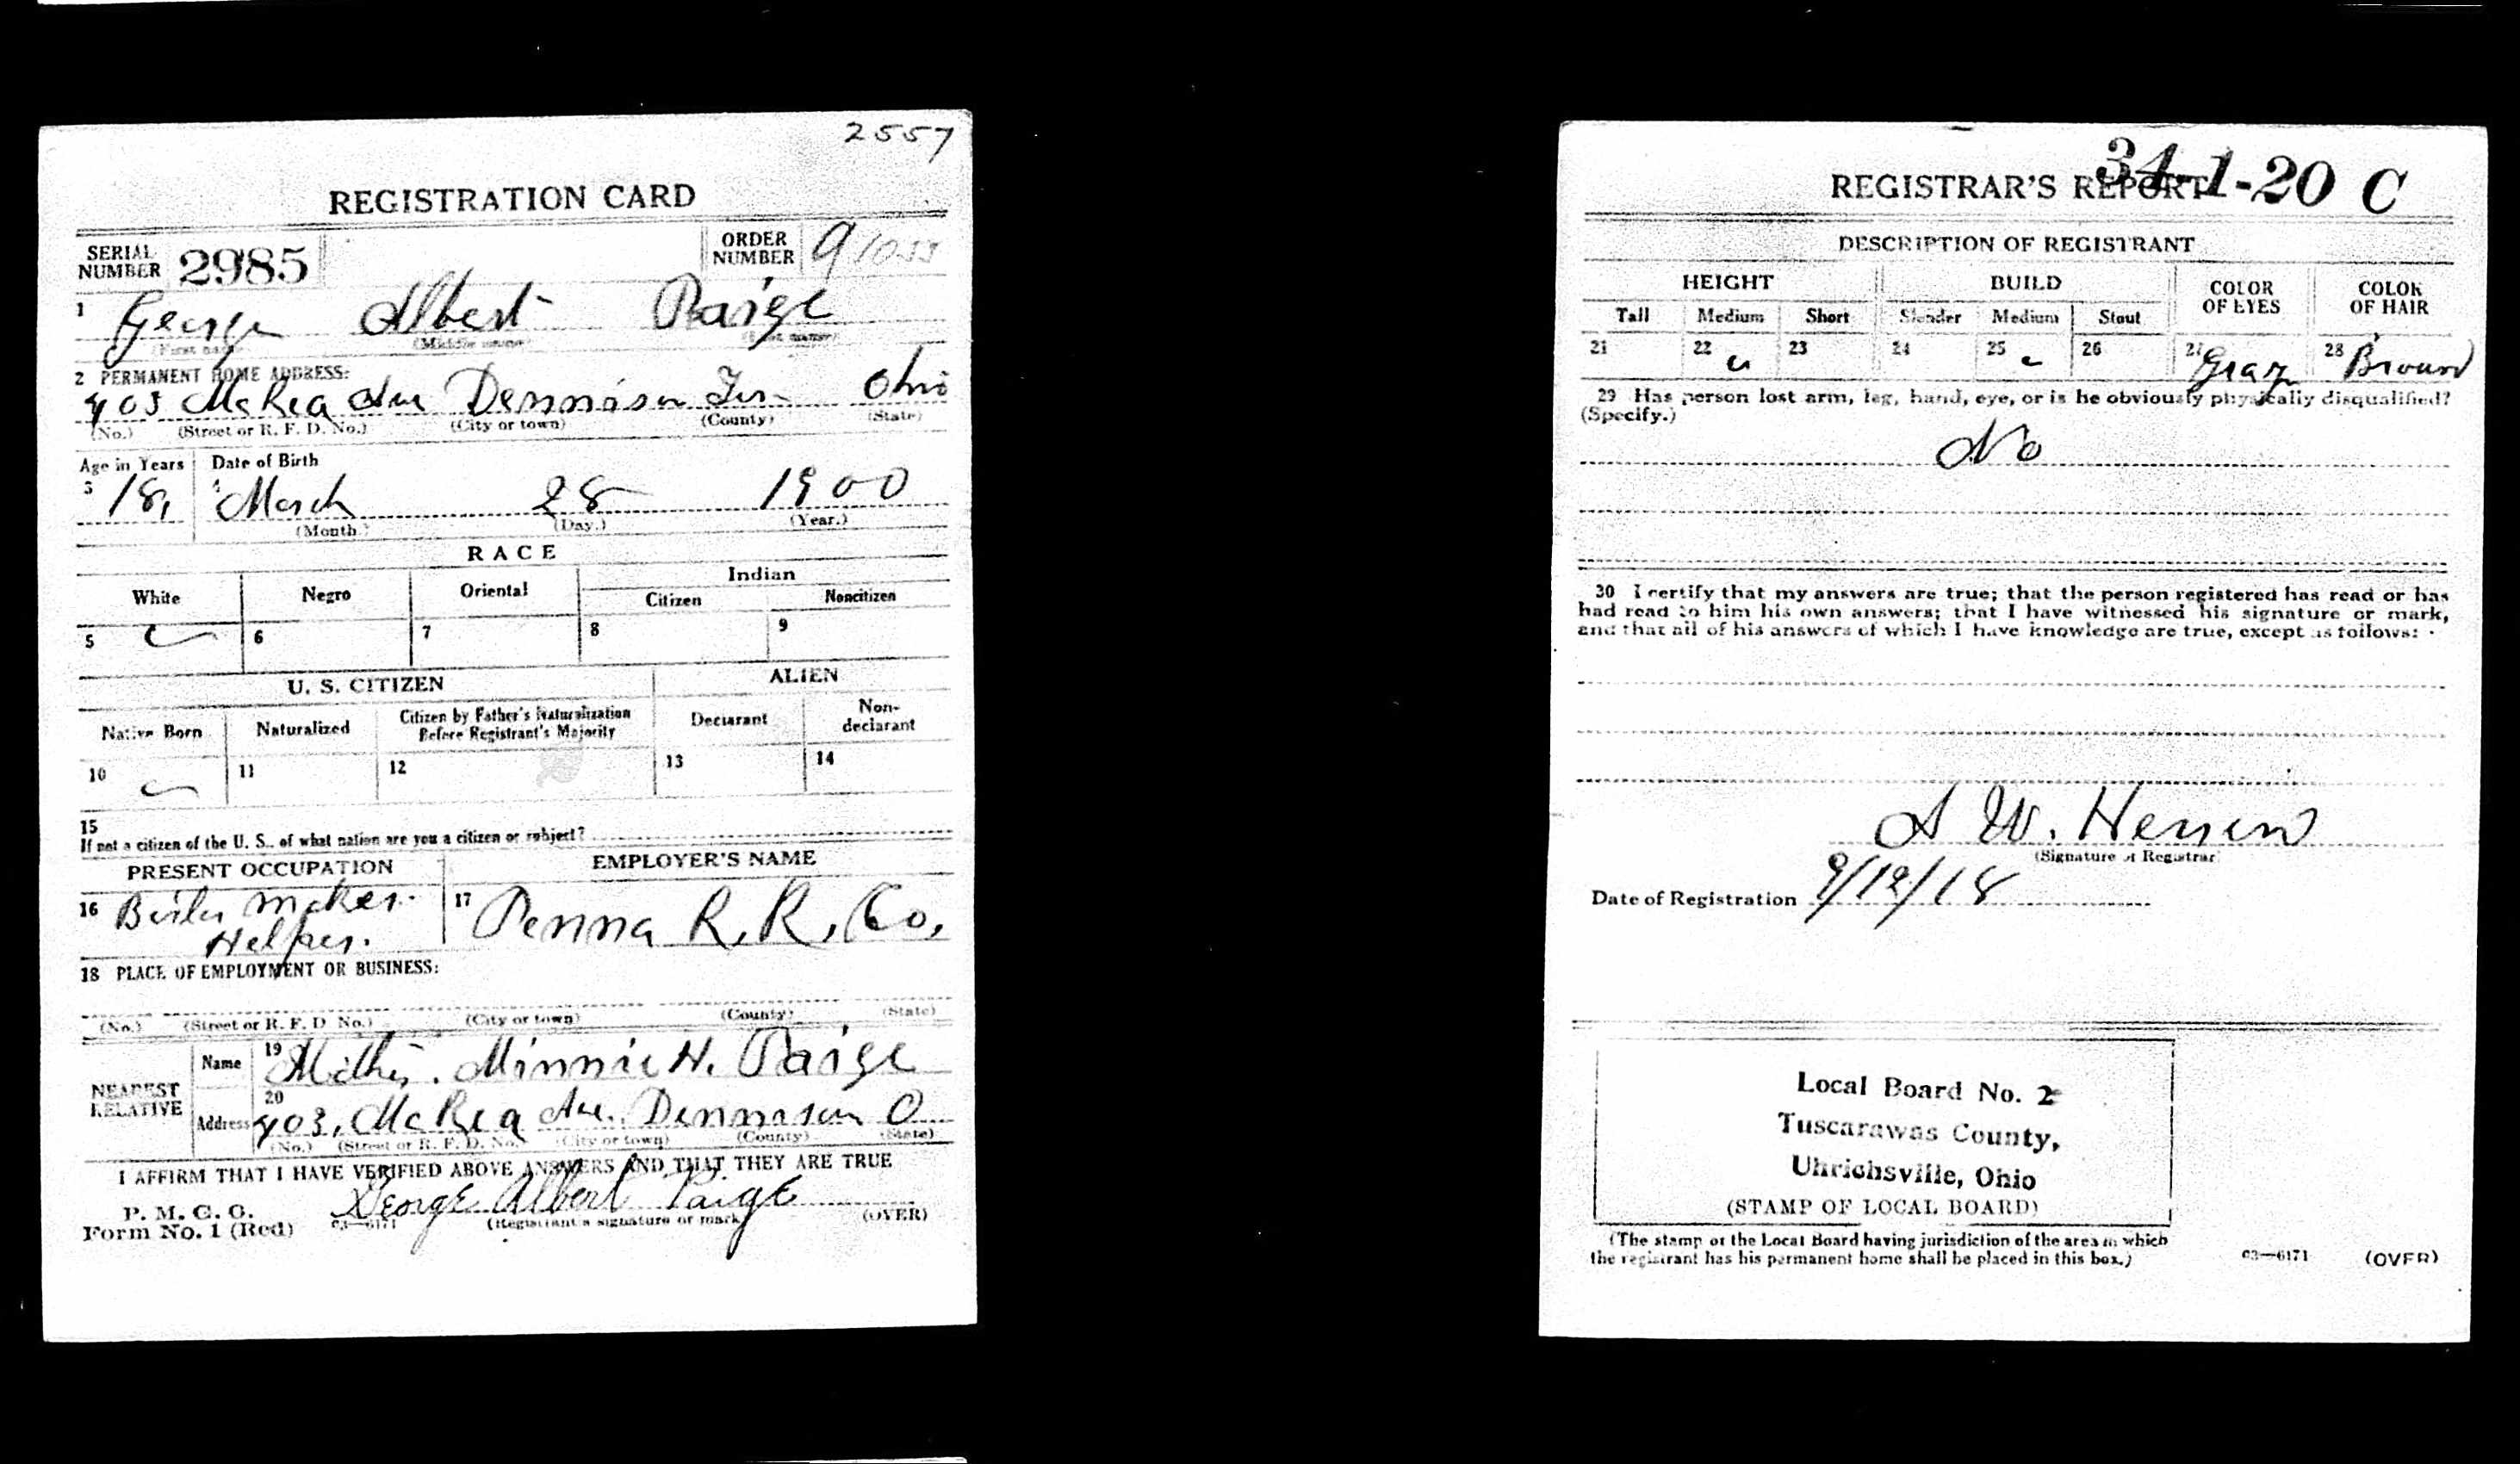 2557
REGISTRATION CARD
SERIAL NUMBER 2985 ORDER NUMBER 9
1 George Albert Paige
(First name) (Middle name) (Last name)
2 PERMANENT HOME ADDRESS:
403 McRea Ave Dennison Ohio
(No.) (Street or R. F. D. No.) (City or town) (County) (State)
Age in Years Date of Birth
3 18, 4 March 28 1900
(Month.) (Day.) (Year.)
RACE
White Negro Oriental Indian
Citizen Noncitizen
5 6 7 8 9
U. S. CITIZEN ALIEN
Native Born Naturalized Citizen by Father's Naturalization Before Registrant's Majority Declarant Non-declarant
10 11 12 13 14
15
If not a citizen of the U. S., of what nation are you a citizen or subject?
PRESENT OCCUPATION EMPLOYER'S NAME
16 Boiler Maker. 17 Penna R. R. Co.
Helper.
18 PLACE OF EMPLOYMENT OR BUSINESS:
(No.) (Street or R. F. D. No.) (City or town) (County) (State)
NEAREST RELATIVE
Name 19 Mother. Minnie H. Paige
Address 20 403, McRea Ave. Dennison O
(No.) (Street or R. F. D. No.) (City or town) (County) (State)
I AFFIRM THAT I HAVE VERIFIED ABOVE ANSWERS AND THAT THEY ARE TRUE
P. M. G. O.
Form No. 1 (Red) 03—6171 George Albert Paige (OVER)
(Registrant's signature or mark)
34-1-20 C
REGISTRAR'S REPORT
DESCRIPTION OF REGISTRANT
HEIGHT BUILD COLOR OF EYES COLOR OF HAIR
Tall Medium Short Slender Medium Stout
21 22 23 24 25 26 27 Gray 28 Brown
29 Has person lost arm, leg, hand, eye, or is he obviously physically disqualified?
(Specify.)
No
30 I certify that my answers are true; that the person registered has read or has
had read to him his own answers; that I have witnessed his signature or mark,
and that all of his answers of which I have knowledge are true, except as follows:
(Signature of Registrar)
Date of Registration 9/12/18
Local Board No. 2
Tuscarawas County,
Uhrichsville, Ohio
(STAMP OF LOCAL BOARD)
(The stamp of the Local Board having jurisdiction of the area in which
the registrant has his permanent home shall be placed in this box.)
03—6171 (OVER)